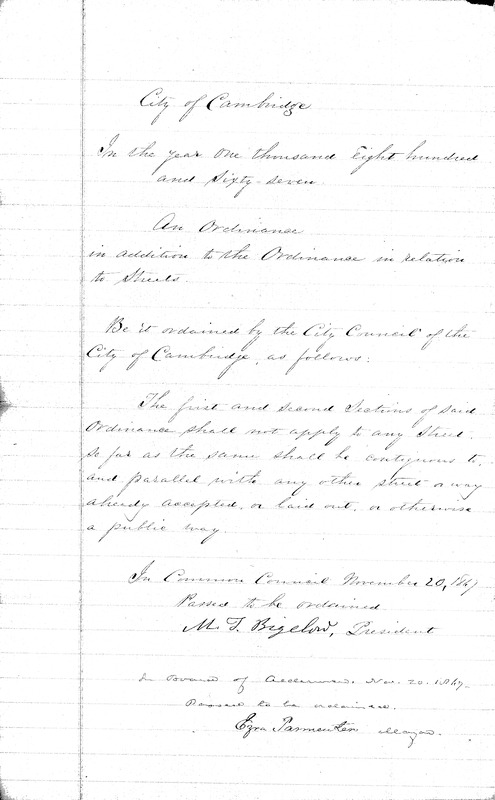 City of Cambridge
In the year One thousand Eight hundred
and Sixty-seven.
An Ordinance
in addition to the Ordinance in relation
to Streets.
Be it ordained by the City Council of the
City of Cambridge, as follows:
The first and second Sections of said
Ordinance shall not apply to any Street,
so far as the same shall be contiguous to,
and parallel with any other street or way
already accepted, or laid out, or otherwise
a public way.
In Common Council November 20, 1867
Passed to be ordained
M. T. Bigelow, President
In Board of Aldermen. Nov. 20. 1867.
Passed to be ordained.
Ezra Parmenter Mayor.